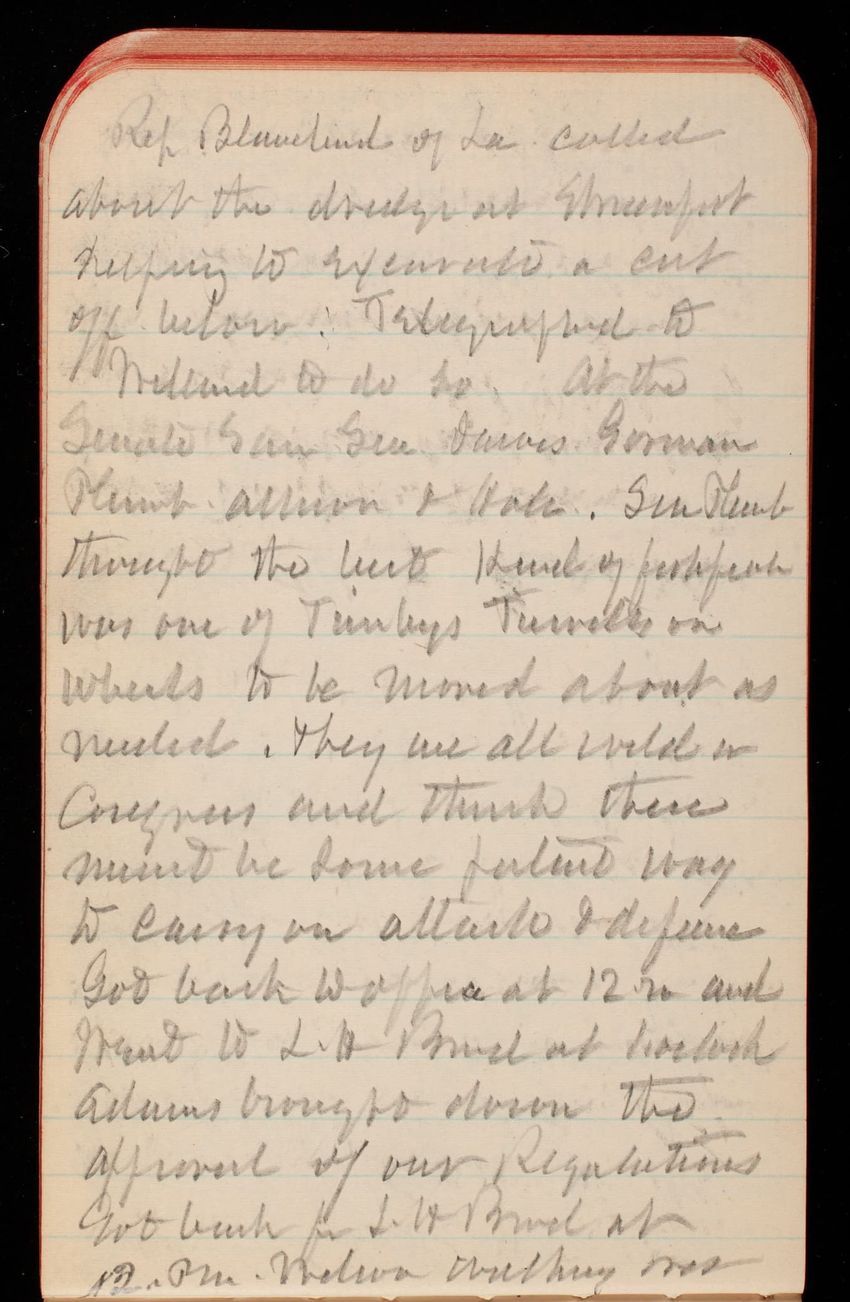 Rep Blanchard of La called
about the dredge at Shreveport
helping to excavate a cut
off below. Telegraphed to
Willard to do so. At the
Senate Saw Sen Dawes Gorman
Plumb Allison & Hale. Sen Plumb
thought the best kind of
was one of Timbys Turrets on
wheels to be moved about as
needed. They are all wild in
Congress and think there
must be some patent way
to carry on attack & defence
Got back to office at 12 and
Went to L. H Bord at
Adams brought down the
approval of our Regulations
Got back fr L. H Bord at
Pm. Nelson was